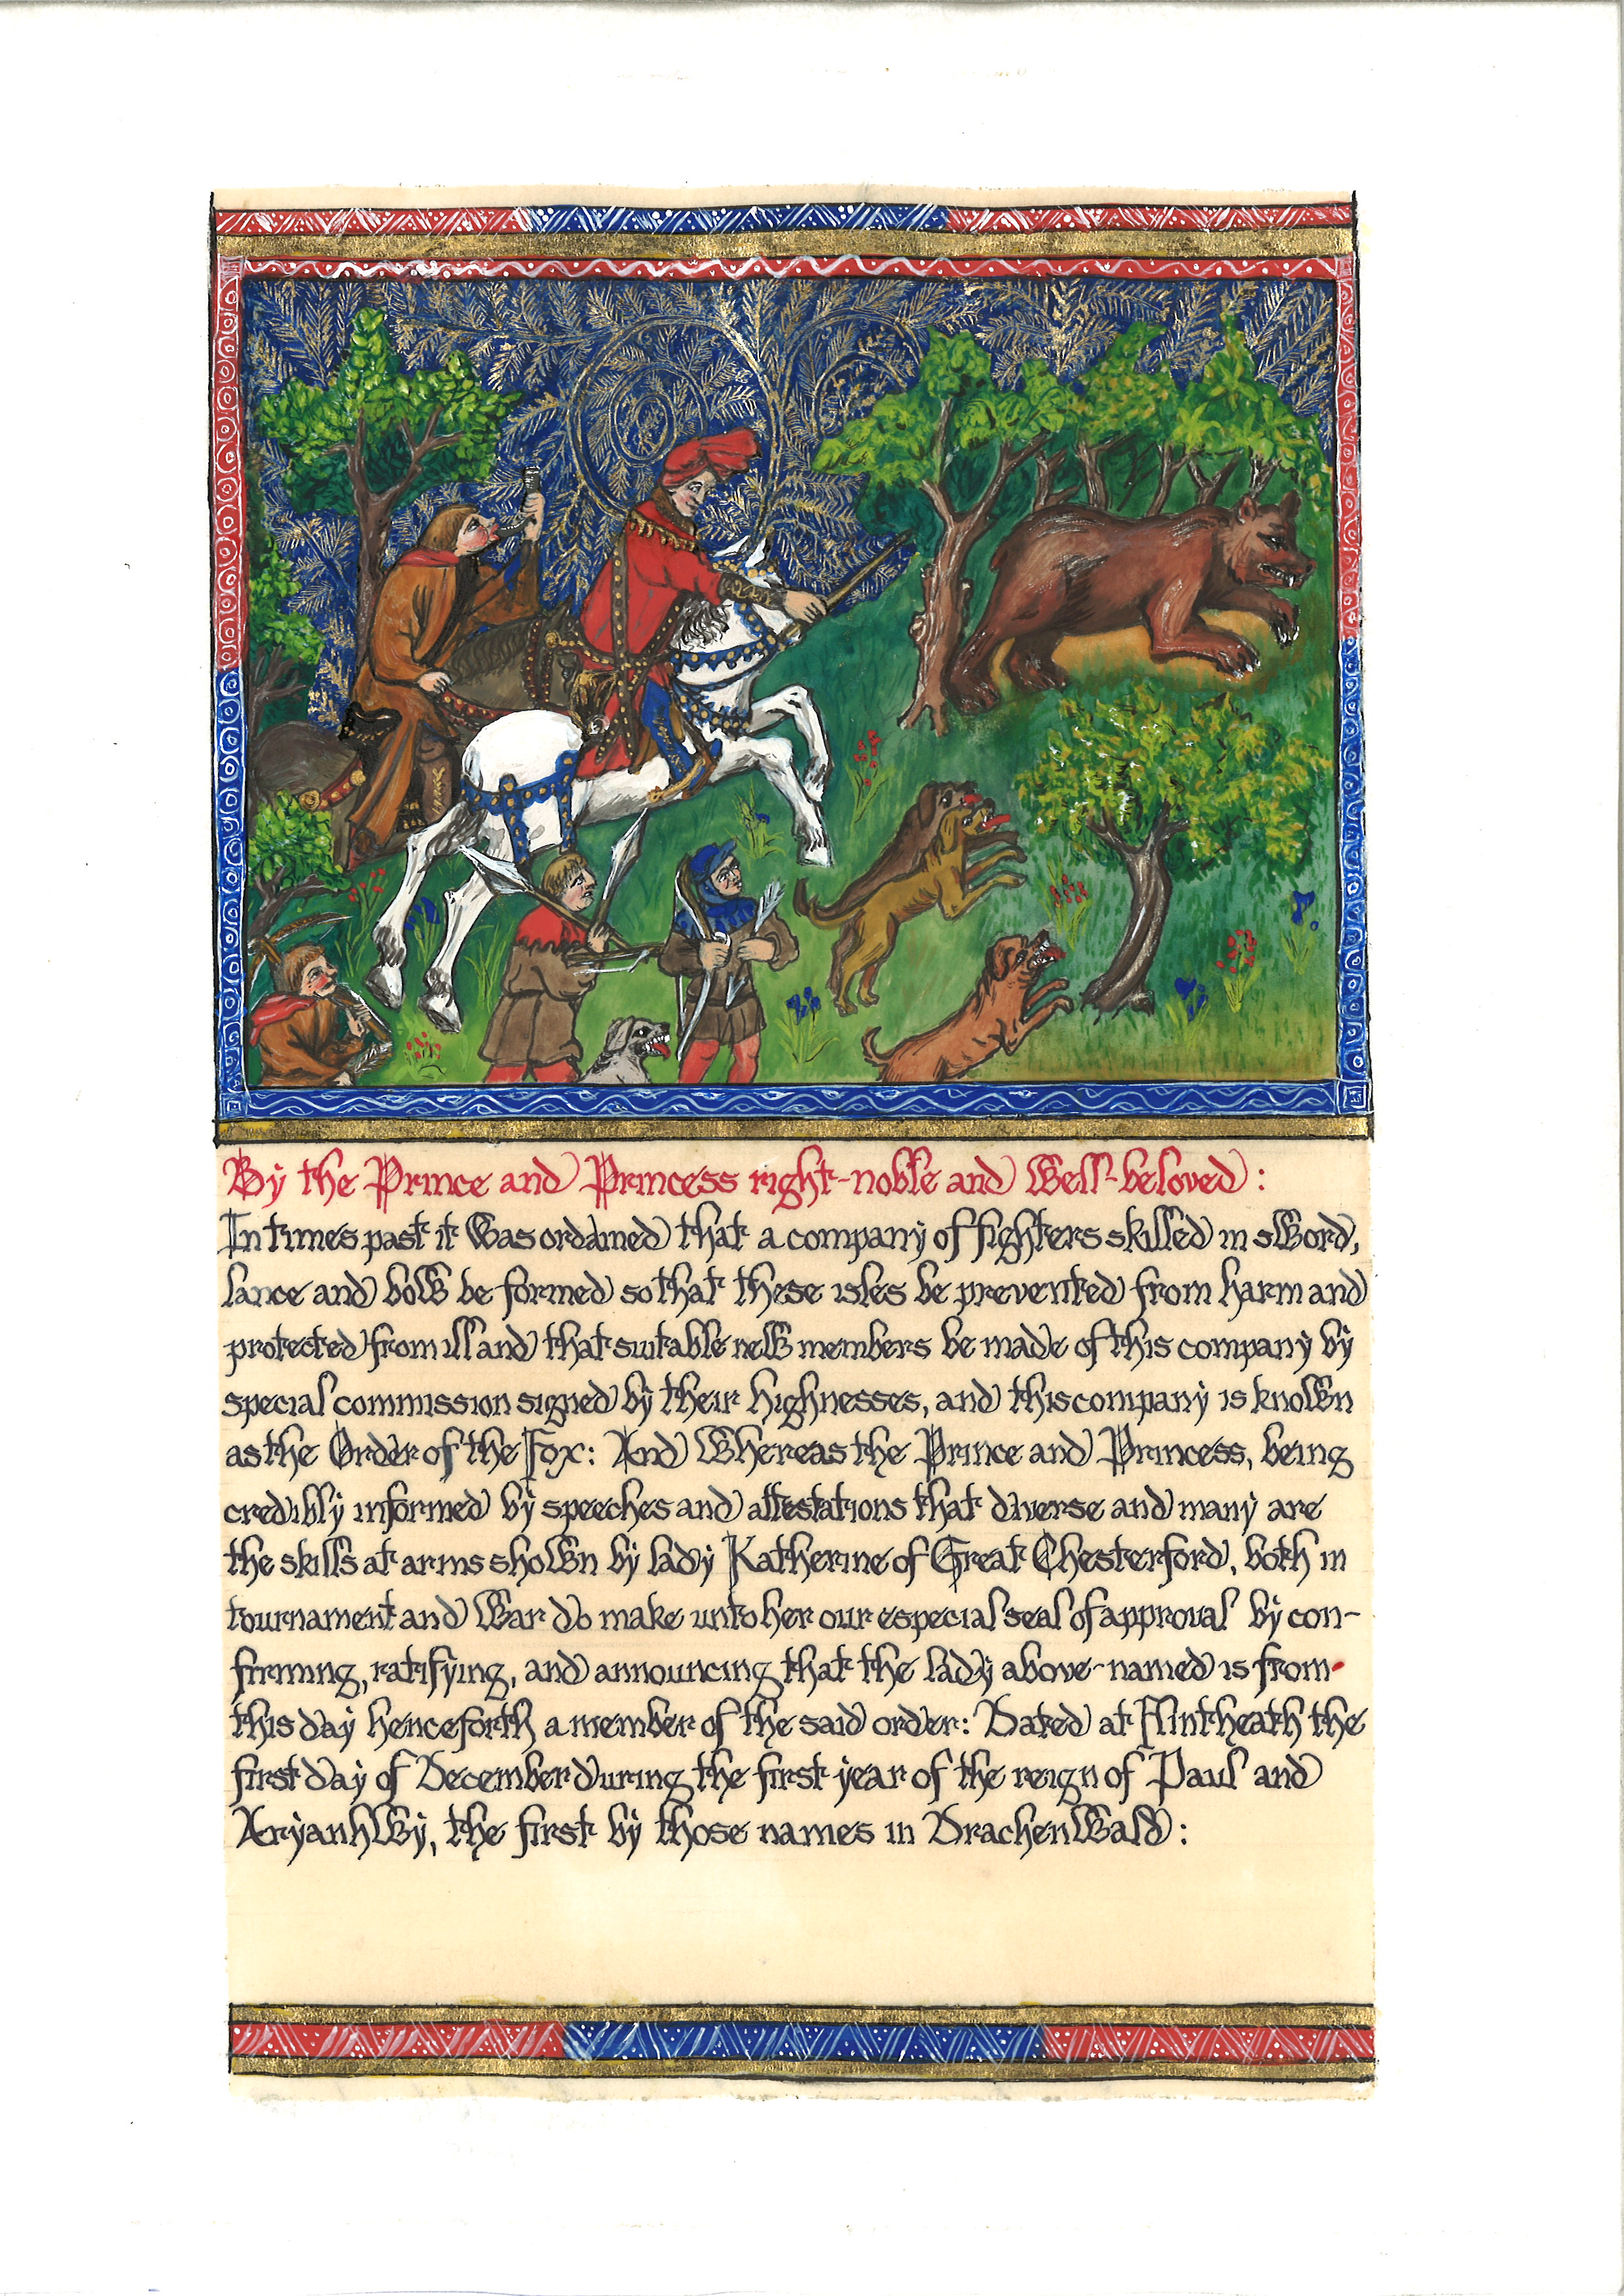 By the Prince and Princess right-noble and Well-beloved:
In times past it Was ordained that a company of fighters skilled in sWord,
lance and boW be formed so that these isles be prevented from harm and
protected from ill and that suitable neW members be made of this company by
special commission signed by their highnesses, and this company is knoWn
as the Order of the Fox: And Whereas the Prince and Princess, being
credibly informed by speeches and attestations that diverse and many are
the skills at arms shoWn by lady Katherine of Great Chesterford, both in
tournament and War do make unto her our especial seal of approval by con-
firming, ratifying, and announcing that the lady above-named is from
this day henceforth a member of the said order: Dated at Flintheath the
first day of December during the first year of the reign of Paul and
AryanhWy, the first by those names in DrachenWald: